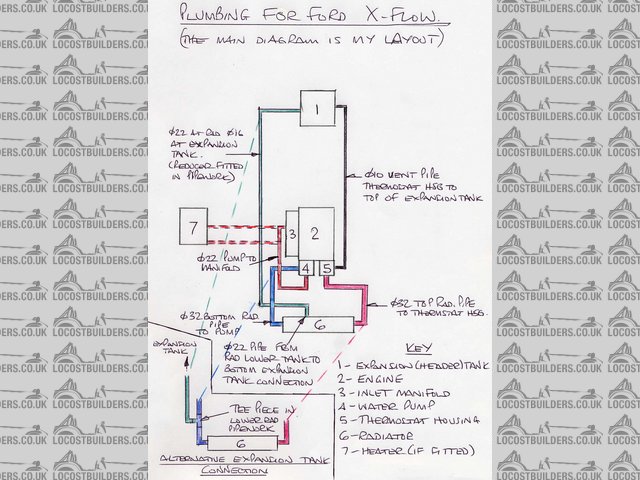 PLUMBING FOR FORD X-FLOW.
(THE MAIN DIAGRAM IS MY LAYOUT)
1
Ø22 AT RAD Ø16
AT EXPANSION
TANK.
(REDUCER FITTED
IN PIPEWORK)
Ø10 VENT PIPE
THERMOSTAT HSG TO
TOP OF EXPANSION TANK
7
3
2
Ø22 PUMP TO
MANIFOLD
4
5
Ø32 BOTTOM RAD
PIPE
TO PUMP
6
Ø32 TOP RAD. PIPE
TO THERMOSTAT HSG.
EXPANSION
TANK
Ø22 PIPE FROM
RAD LOWER TANK TO
BOTTOM EXPANSION
TANK CONNECTION
TEE PIECE IN
LOWER RAD
PIPEWORK
6
ALTERNATIVE EXPANSION TANK
CONNECTION
KEY
1 - EXPANSION (HEADER) TANK
2 - ENGINE
3 - INLET MANIFOLD
4 - WATER PUMP
5 - THERMOSTAT HOUSING
6 - RADIATOR
7 - HEATER (IF FITTED)
LOCOSTBUILDERS.CO.UK